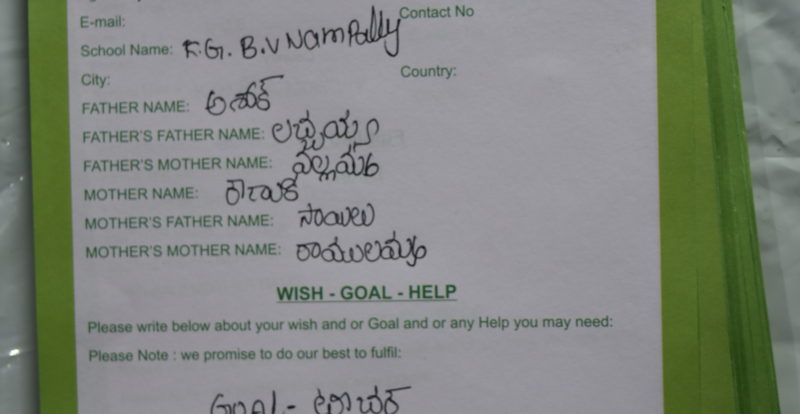 E-mail: Contact No
School Name: K.G.B.V Nampally
City: Country:
FATHER NAME: అశోక్
FATHER'S FATHER NAME: లచ్చయ్య
FATHER'S MOTHER NAME: మల్లమ్మ
MOTHER NAME:
MOTHER'S FATHER NAME: సాయిలు
MOTHER'S MOTHER NAME: రాములమ్మ
WISH - GOAL - HELP
Please write below about your wish and or Goal and or any Help you may need:
Please Note : we promise to do our best to fulfil:
GOAL - టీచర్